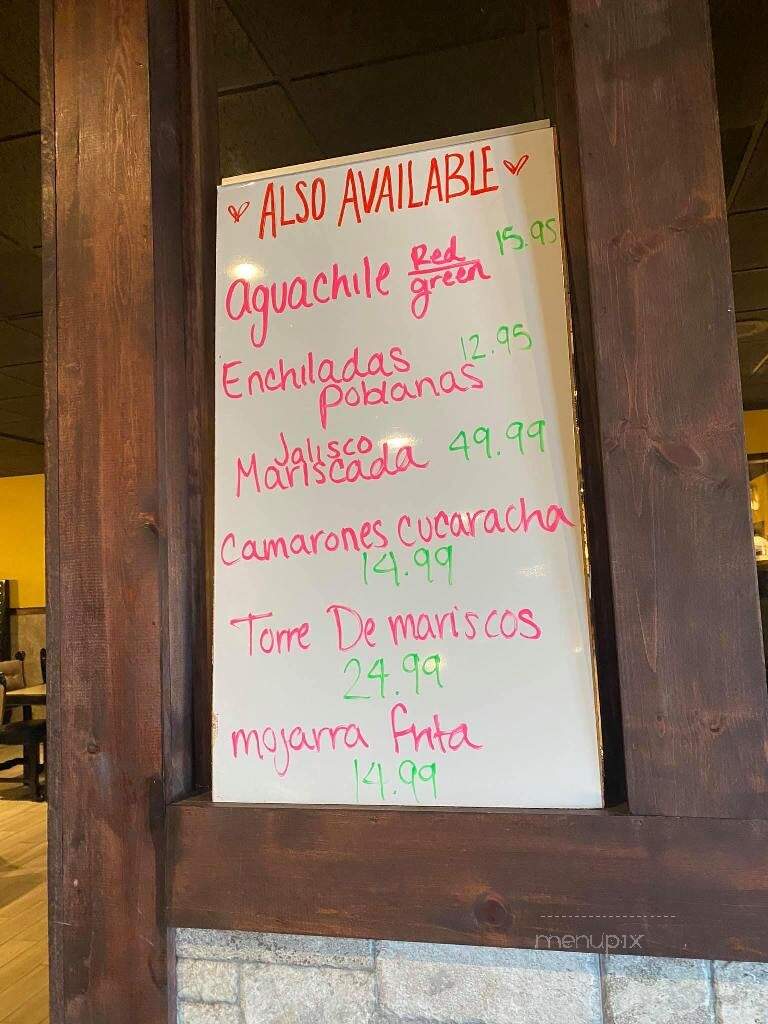 ALSO AVAILABLE
aguachile Red green 15.95
Enchiladas 12.95
Poblanas
Jalisco
Mariscada 49.99
Camarones cucaracha
14.99
Torre De mariscos
24.99
mojarra frita
14.99
menupix